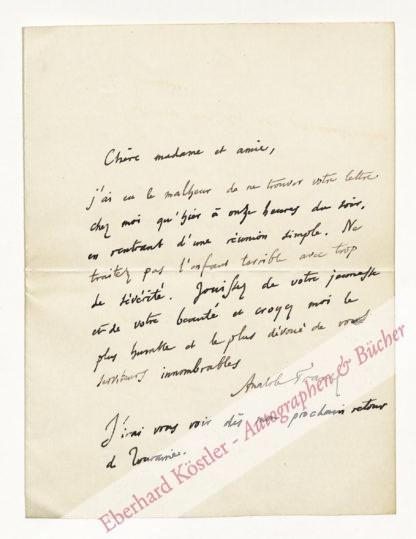 Chère madame et amie,
j'ai eu le malheur de ne trouver votre lettre
chez moi qu'hier à onze heures du soir,
en rentrant d'une réunion simple. Ne
traitez pas l'enfant terrible avec trop
de sévérité. Jouissez de votre jeunesse
et de votre beauté et croyez moi le
plus humble et le plus dévoué de vos
serviteurs innombrables
Anatole France
J'irai vous voir dès mon prochain retour
d Touraine.
Eberhard Köstler - Autographen & Bücher